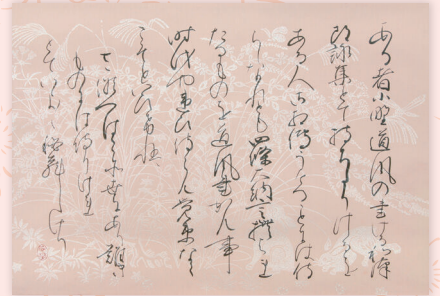 ある者小野道風の書ける和漢
朗詠集とて持ちたりけるを
ある人御相傳うけることには侍
らじなれども四條大納言撰ばれ
たるものを道風書かん事
時代や違ひ侍らん覚束なく
こそといひければ
さ候へばこそ世にあり難き
ものには侍りけれ
とていよいよ秘蔵しけり